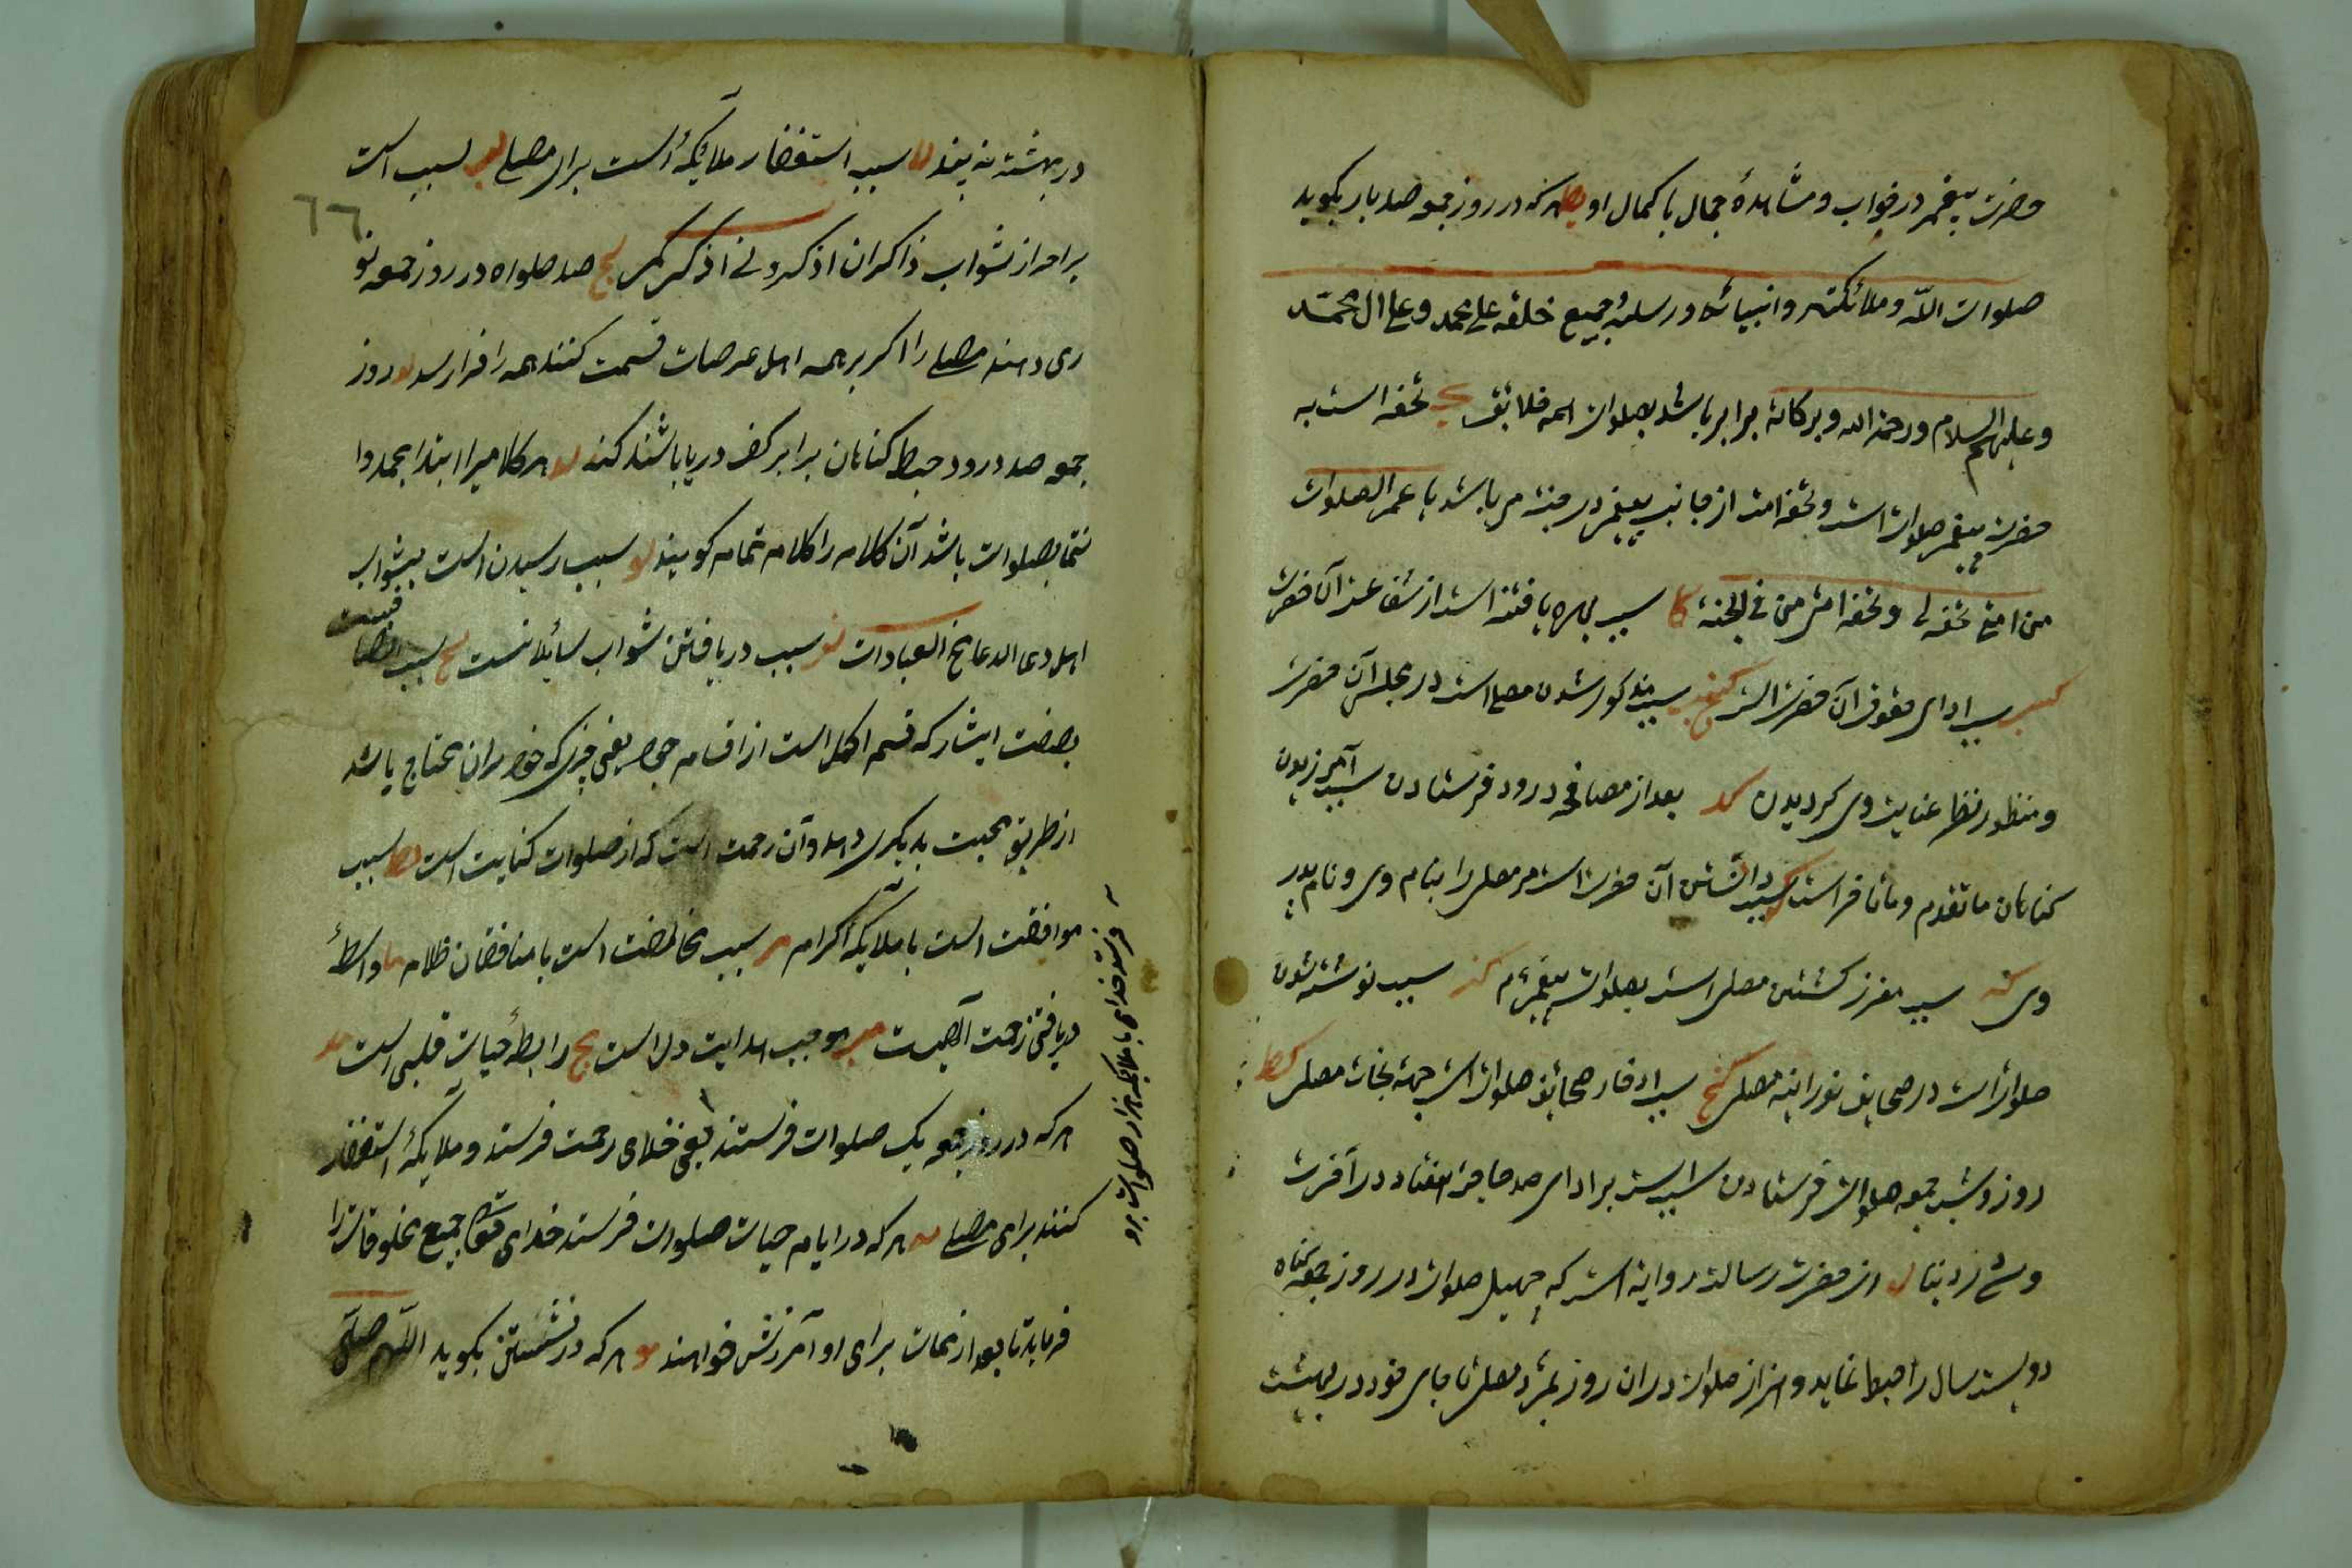 حضرت پیغمبر در خواب و مشاهدهٔ جمال با کمال او یط هرکه در روز جمعه صد بار بکوید
صلوات اللّه و ملائکته و انبیائه و رسله و جمیع خلقه علی محمد و علی ال محمّد
و علیهم السلام و رحمة الله و برکاته برابر باشد بصلوات همه خلایق ک تحفه است به
حضرت پیغمبر صلوات است و تحفه امت از جانب پیغمبر در جنت مرباشد یا عمر الصلوات
من امتی تحفه لی و تحفه امتی منی فی الجنة کا سبب بهره یافتنه است از شفاعت آن حضرت
کب سبب ادای حقوق آن حضرت است کج سبب مذکور شدن مصلی است در مجلس آن حضرت
و منظور نظر عنایت وی کردیدن کد بعد از مصافحه درود فرستادن سبب آمرزیدن
کناهان ما تقدم و ما تاخر است که سبب دانستن آن حضرت است مر مصلی را بنام وی و نام پدر
وی کو سبب معزز کشتن مصلی است بصلوات پیغمبر م کز سبب نوشته شدن
صلوات است در صحایف نورانیه مصلی کح سبب ادخار صحائف صلوات است جهة نجات مصلی کط
روز و شب جمعه صلوات فرستادن سببست برادای صد حاجت هفتاد در آخرت
و سی در دنیا ل از حضرت رسالت روایة است که چهل صلوات در روز جمعه کناه
دویست سال را حبط نماید و هزار صلوات در ان روز نمیرد مصلی تا جای خود در بهشت
در بهشت نه بیند لا سبب استغفار ملایکهٔ است برای مصلی لب سبب است
٦٦
برامد از ثواب ذاکران اذکرونی اذکرکم لج صد صلواه در روز جمعه نو
ری دهند مصلی را اکر بر همه اهل عرصات قسمت کنند همه را فرا رسد لد روز
جمعه صد درود حبط کناهان برابر کف دریا باشند کند له هر کلامیرا ابتدا بحمد وا
نتها بصلوات باشد آن کلام را کلام تمام کویند لو سبب رسیدن است بثواب
اهل دعا الدعا مخ العبادات لز سبب دریافتن ثواب سائلانست لح سبب اتصا
فیست
بصفت ایثار که قسم اکمل است از اقسام جود یعنی چیزی که خود بدان محتاج باشد
از طریق محبت بدیکری دهد و آن رحمت است که از صلوات کنایت است لط سبب
موافقت است با ملایکهٔ کرام م سبب مخالفت است با منافقان ظلام ما واسطهٔ
دریافتن رحمت آلهیست مب موجب هدایت دل است مج رابطهٔ حیات قلبی است مد
هرکه در روز جمعه یک صلوات فرستد یعنی خدای رحمت فرستد و ملایکهٔ استغفار
کنند برای مصلی مه هرکه در ایام حیات صلوات فرستد خدای تعالی جمیع مخلوقات را
فرماید تا بعد از ممات برای او آمرزش خواهند مو هرکه در نشستن بکوید اللّهم صلّی
فرستد خدای با ملایکه هزار صلوات برو